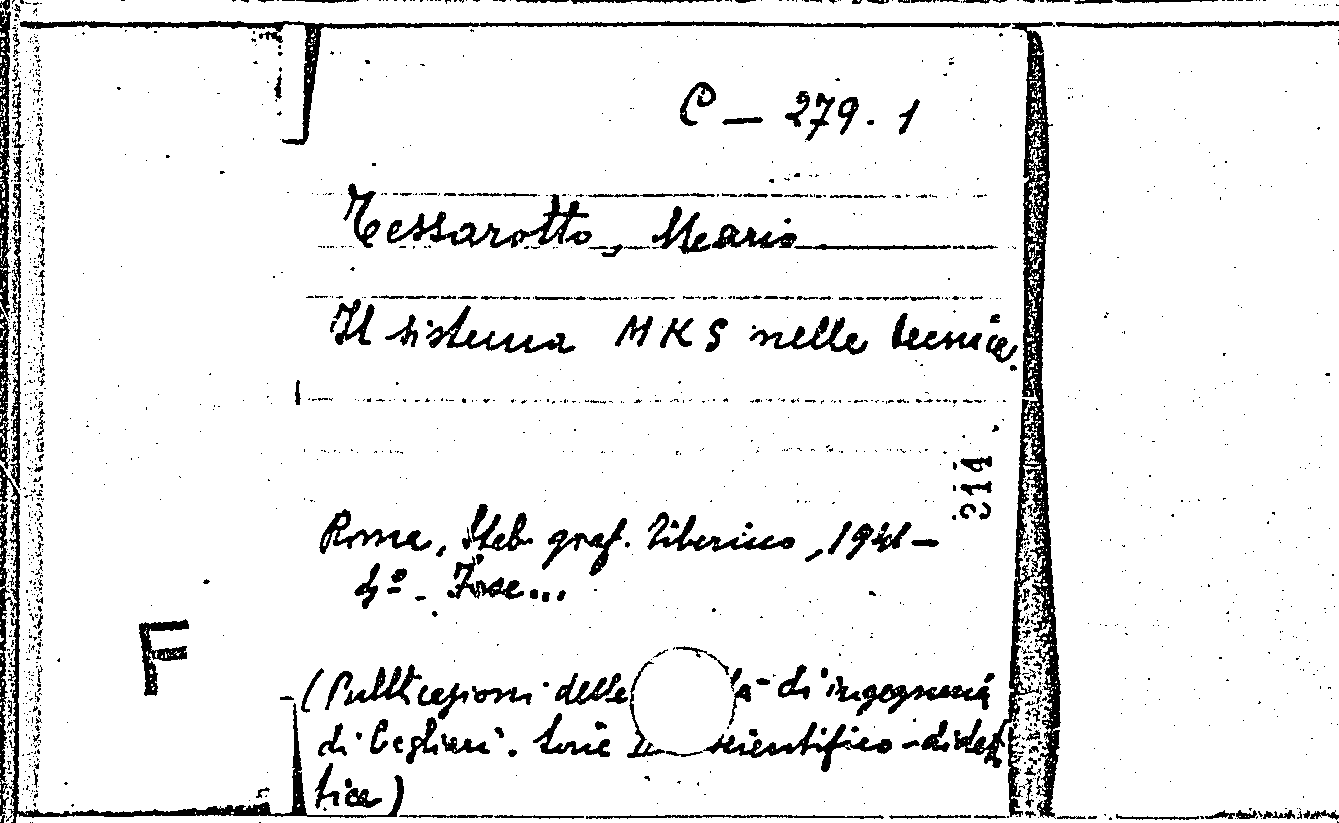 C - 279. 1
Tessarotto, Mario
Il sistema MKS nella tecnica.
314
Roma, Stab. graf. Tiberino, 1941 -
4º - Fasc...
F
(Pubblicazioni della di ingegneria
di Cagliari. Serie scientifico-didat
tica)